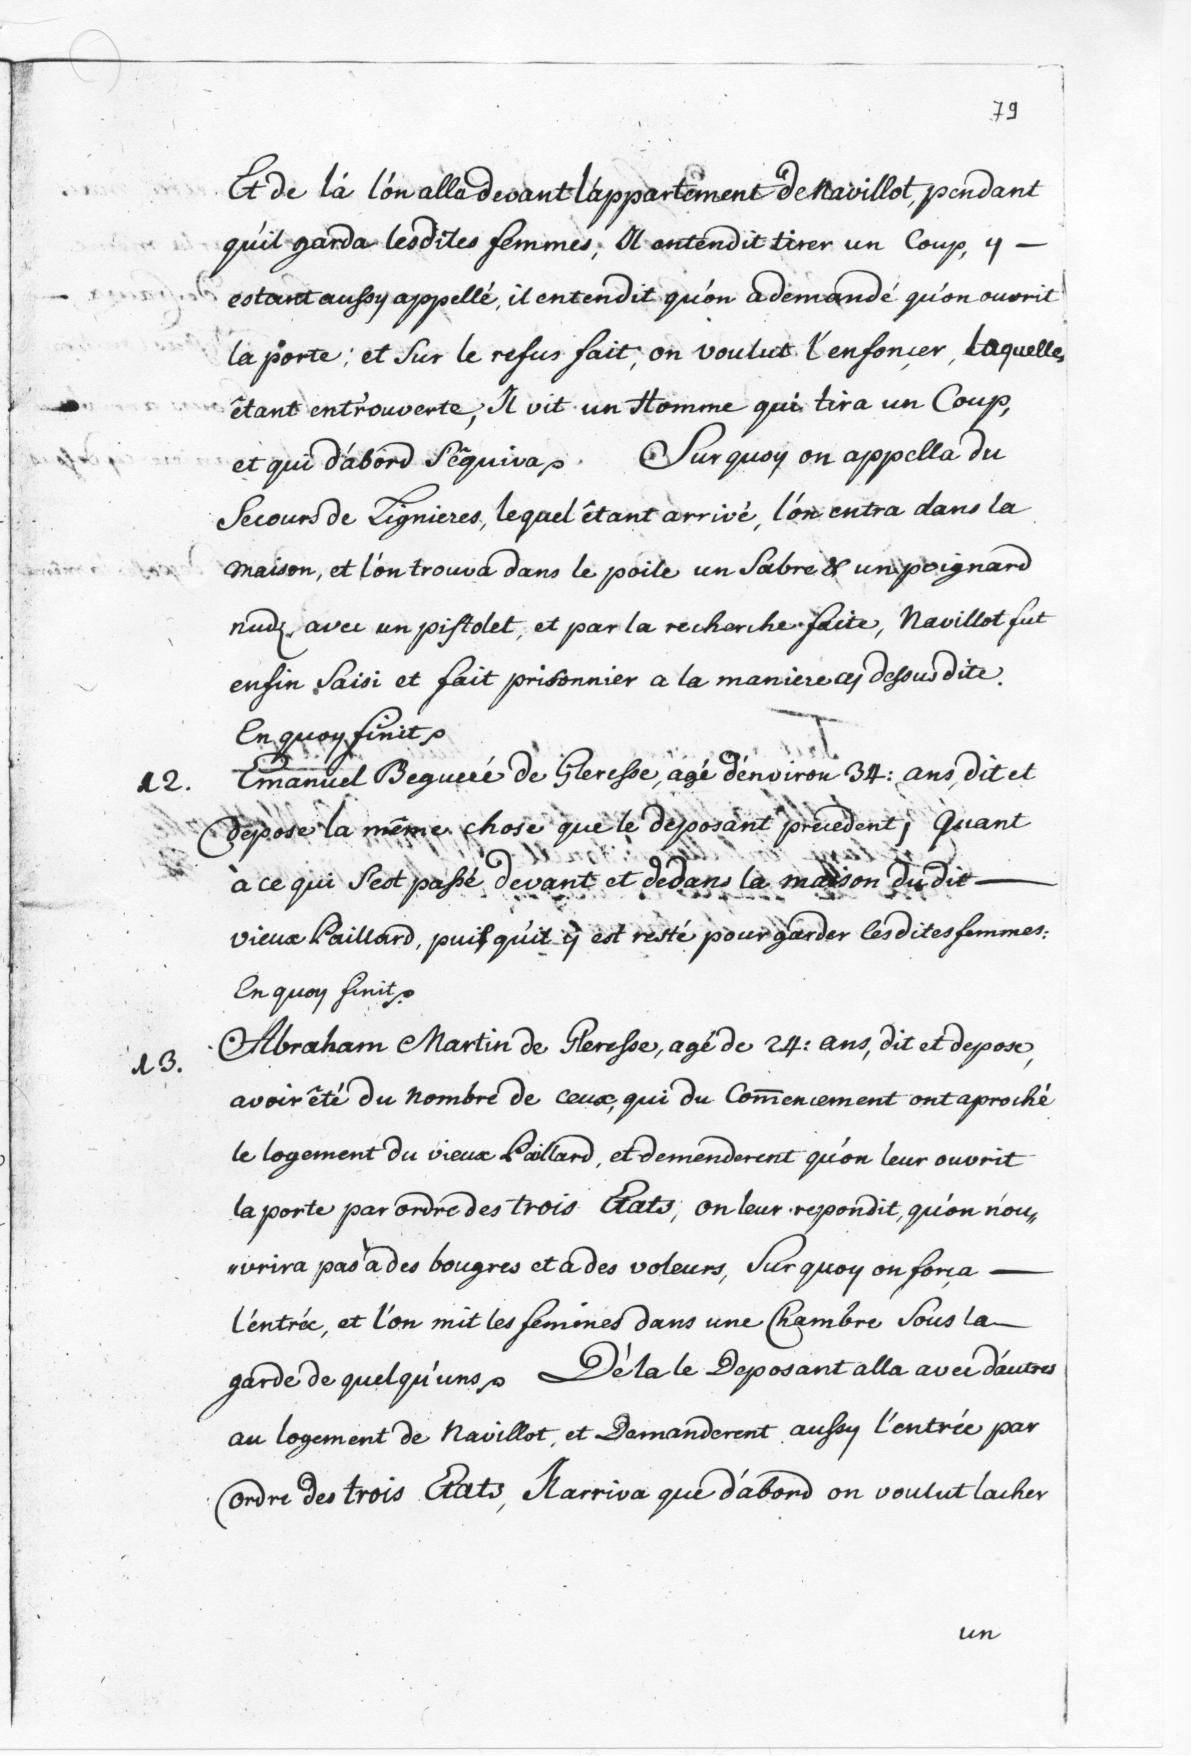 79
Et de lá l'ón alla devant l'appartement de Navillot, pendant
qu'il garda lesdites femmes; Il entendit tirer un Coup, y —
estant aussy appellé, il entendit qu'ón a demandé qu'on ouvrit
la porte; et sur le refus fait, on voulut l'enfonçer, laquelle
êtant entr'ouverte, Il vit un Homme qui tira un Coup,
et qui d'abord s'ésquiva. Sur quoy on appella du
Secours de Lignieres, lequel êtant arrivé, l'ón entra dans la
maison, et l'ón trouva dans le poile un Sabre & un poignard
nuds avec un pistolet, et par la recherche faite, Navillot fut
enfin Saisi et fait prisonnier a la maniere cy dessus dite.
En quoy finit.
12. Emanuel de Gleresse, agé d'environ 34: ans, dit et
depose la même chose que le deposant precedent, Quant
à ce qui s'est passé devant et dedans la maison du dit —
vieux Paillard, puis qu'il y est resté pour garder lesdites femmes:
En quoy finit.
13. Abraham Martin de Gleresse, agé de 24: ans, dit et depose,
avoir êté du Nombre de ceux, qui du Com̄encement ont aproché
le logement du vieux Paillard, et demenderent qu'on leur ouvrit
la porte par ordre des trois Etats, on leur repondit, qu'on n'ou„
„vrira pas à des bougres et a des voleurs, Sur quoy on força —
l'entrée, et l'on mit les femmes dans une Chambre Sous la —
garde de quelqu'uns. Dé la le Deposant alla avec d'autres
au logement de Navillot, et Demanderent aussy l'entrée par
ordre des trois Etats, Il arriva que d'abord on voulut lacher
un